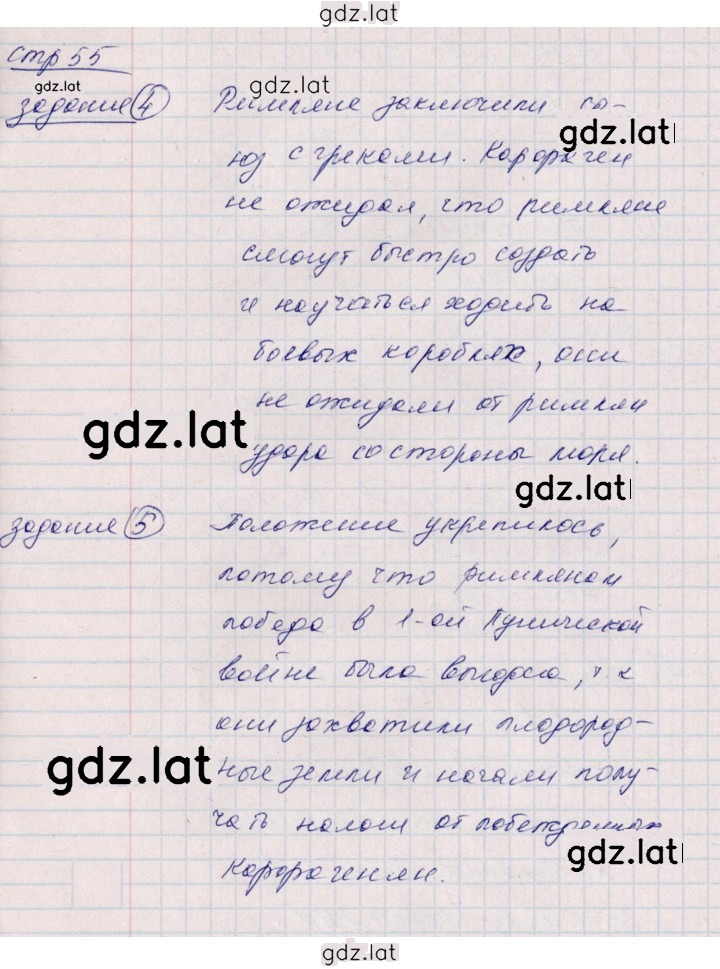 gdz.lat
стр 55
gdz.lat
gdz.lat
задание 4
Римляне заключили со-
gdz.lat
юз с греками. Карфаген
не ожидал, что римляне
смогут быстро создать
и научаться ходить на
боевых кораблях, они
не ожидали от римлян
gdz.lat
удара со стороны моря.
gdz.lat
задание 5
Положение укрепилось,
потому что римлянам
победа в 1-ой Пунической
войне была выгодна, т.к
они захватили плодород-
gdz.lat
ные земли и начали полу-
чать налоги от побежденных
gdz.lat
Карфагенян.
gdz.lat